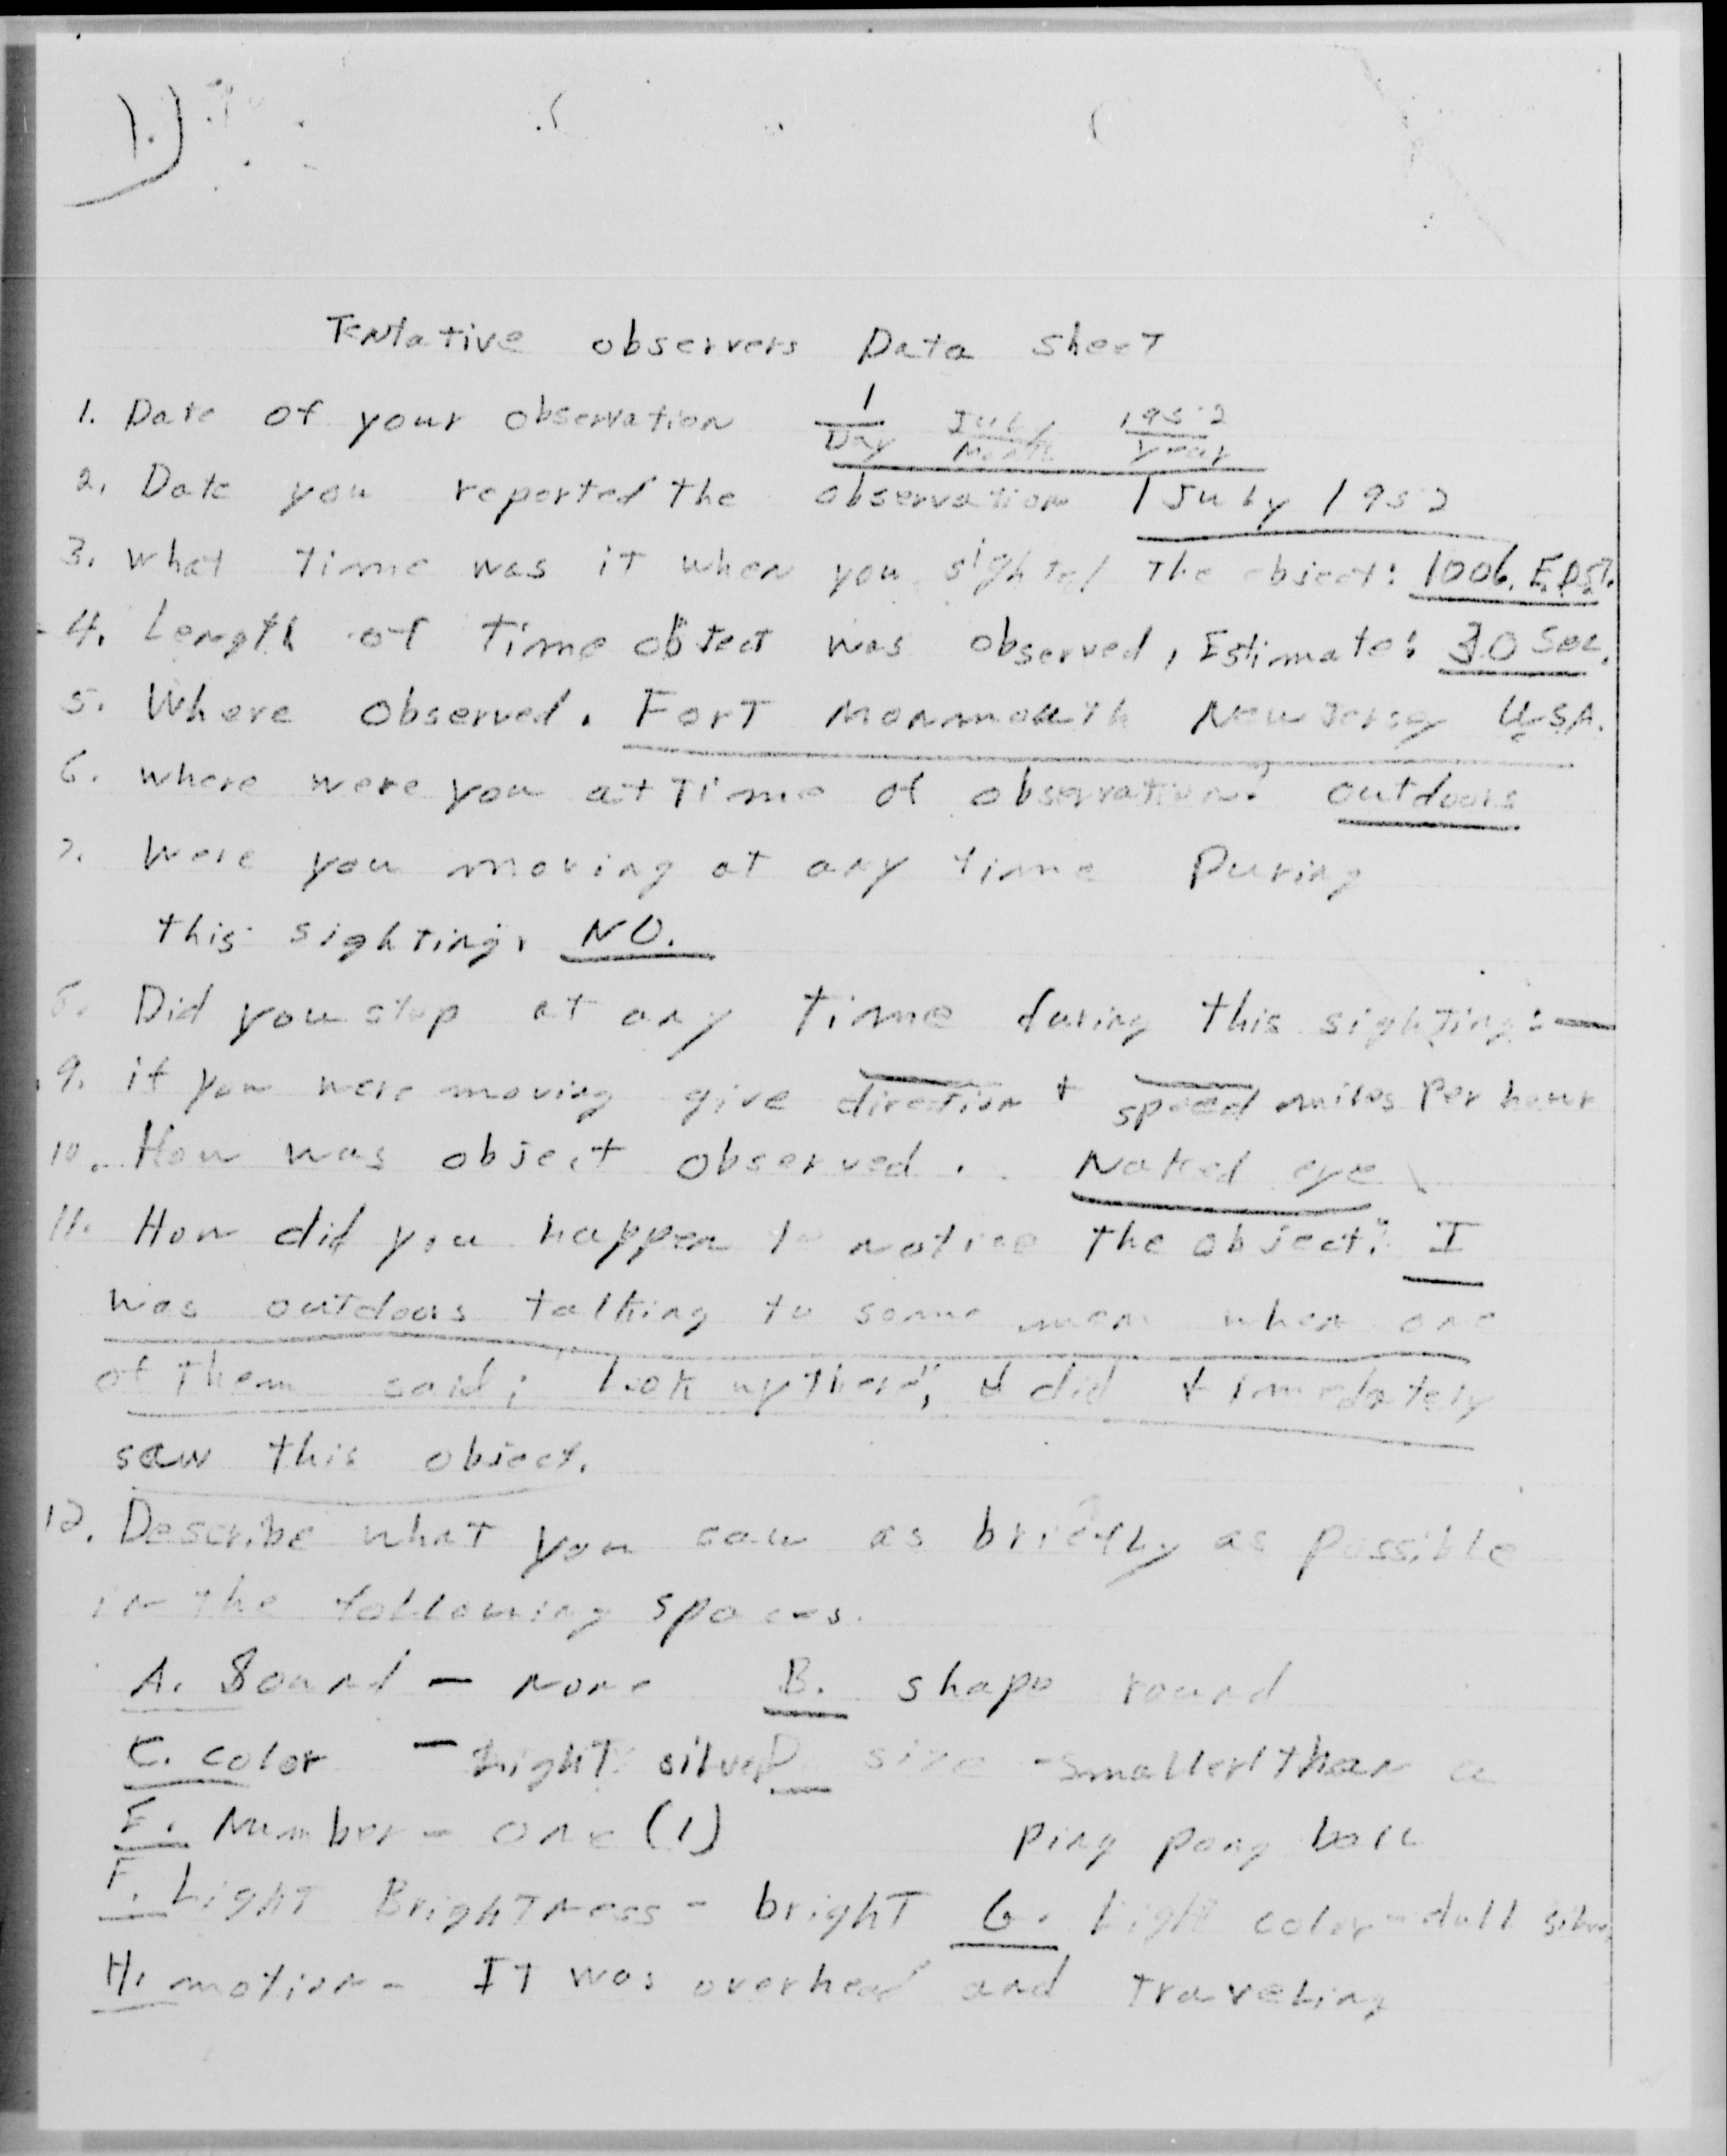 1.)
Tentative observers Data sheet
1. Date of your observation 1 July 1952
Day Month Year
2. Date you reported the observation 1 July 1952
3. what time was it when you sighted the object: 1006. E.D.S.T.
4. Length of time object was observed, Estimate: 30 sec.
5. Where observed. Fort Monmouth New Jersey U.S.A.
6. where were you at time of observation? outdoors
7. Were you moving at any time During
this sighting. NO.
8. Did you stop at any time during this sighting: —
9. if you were moving give direction + speed miles per hour
10. How was object observed. Naked eye
11. How did you happen to notice the object: I
was outdoors talking to some men when one
of them said; "look up there", I did + immedately
saw this object.
12. Describe what you saw as briefly as possible
in the following spaces.
A. Sound - None B. shape round
C. color - Light silver D size - smaller than a
E. Number - one (1) ping pong ball
F. Light Brightness - bright G. Light color - dull silver
H. motion - IT was overhead and traveling